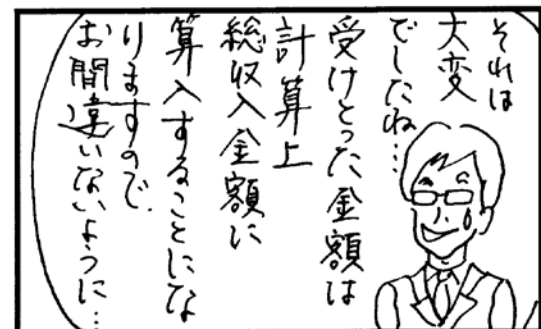 それは
大変
でしたね…
受けとった金額は
計算上
総収入金額に
算入することにな
りますので、
お間違いないように…